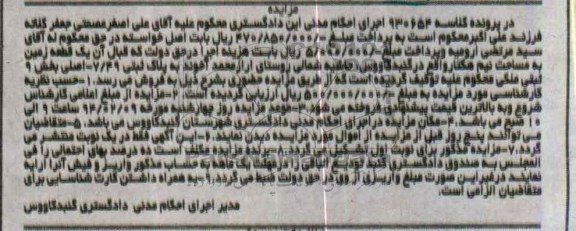 مزایده
در پرونده کلاسه ۹۳۰۶۵۳ اجرای احکام مدنی این دادگستری محکوم علیه آقای علی اصغر مصطفی جعفر کلاته
فرزند علی اکبر محکوم است به پرداخت مبلغ ۳۷۰/۸۵۰/۰۰۰ ریال بابت اصل خواسته در حق محکوم له آقای
سید مرتضی و پرداخت مبلغ ریال بابت هزینه اجرا در حق دولت که قبال آن یک قطعه زمین
به مساحت نیم هکتار واقع در گنبدکاووس شمال روستای به پلاک ثبتی اصلی بخش ۱۰
ملکی محکوم علیه توقیف گردیده است که از طریق مزایده حضوری بشرح ذیل به فروش می رسد. ۱-حسب نظریه
کارشناسی مورد مزایده به مبلغ ریال ارزیابی گردیده است. ۲-مزایده از مبلغ اعلامی کارشناس
شروع و به بالاترین قیمت پیشنهادی فروخته می شود. ۳-موعد مزایده روز چهارشنبه مورخه ۹۴/۲/۰۹ ساعت ۹ الی
۱۰ صبح می باشد. ۴-مکان مزایده در اجرای احکام مدنی دادگستری شهرستان گنبدکاووس می باشد. ۵-متقاضیان
می توانند پنج روز قبل از مزایده از اموال مورد مزایده دیدن نمایند. ۶-این آگهی فقط در یک نوبت منتشر می
گردد. ۷-مزایده مذکور برای نوبت اول تشکیل می گردد. ۸-برنده مزایده مکلف است ده درصد بهاء را فی
المجلس به صندوق دادگستری و الباقی را ظرف به حساب مذکور واریز و فیش آنرا ارایه
نمایند در غیر این صورت مبلغ واریزی از وی در حق دولت ضبط می گردد. ۹-به همراه داشتن کارت شناسایی برای
متقاضیان الزامی است.
مدیر اجرای احکام مدنی دادگستری گنبدکاووس